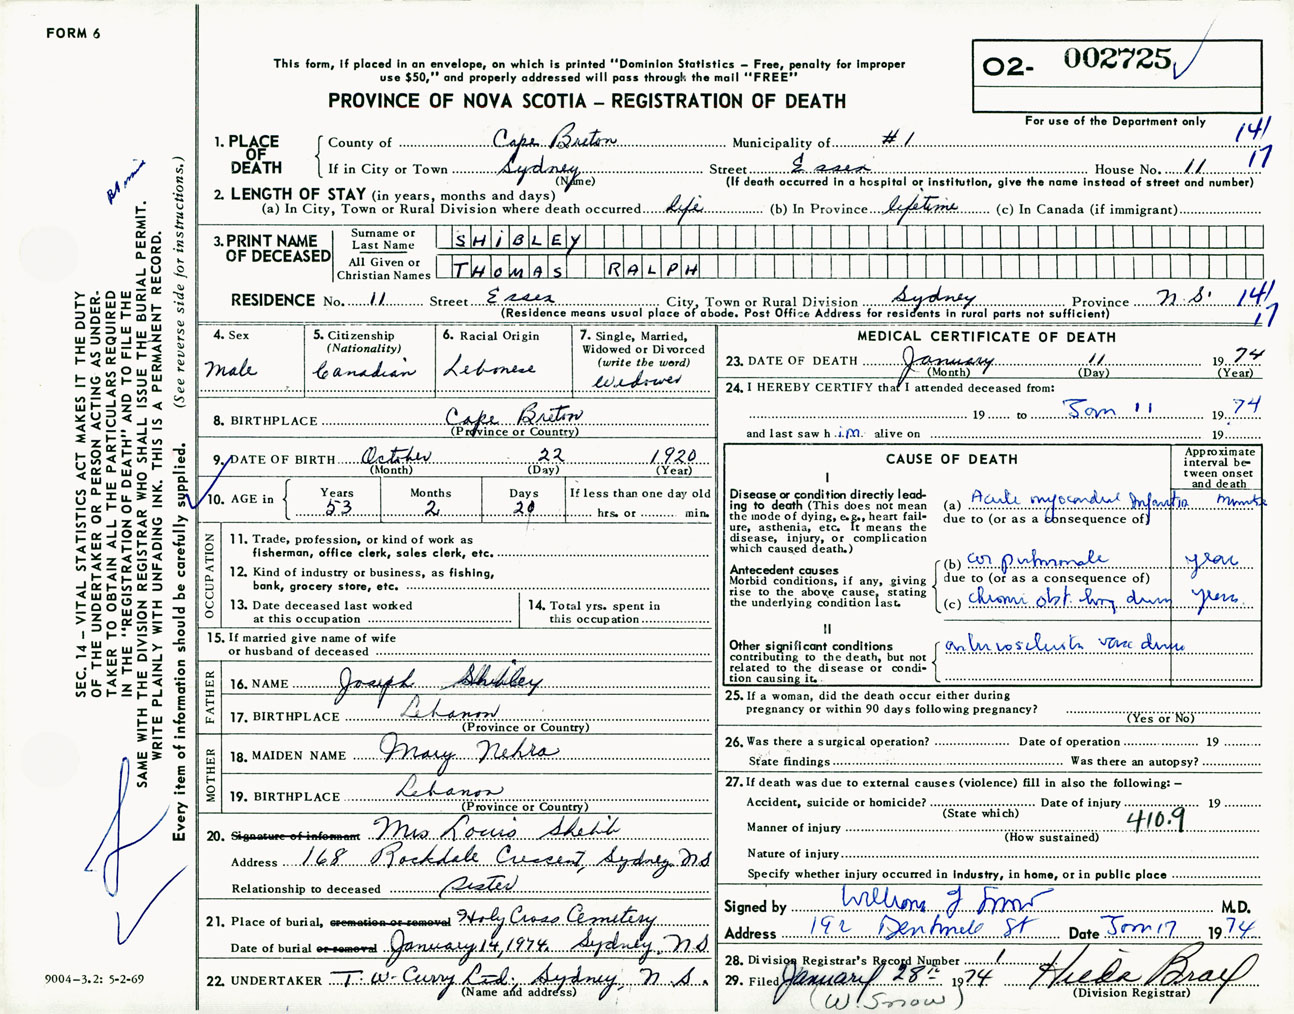 FORM 6
O2- 002725
For use of the Department only
This form, if placed in an envelope, on which is printed "Dominion Statistics – Free, penalty for improper
use $50," and properly addressed will pass through the mail "FREE"
PROVINCE OF NOVA SCOTIA – REGISTRATION OF DEATH
SEC. 14 – VITAL STATISTICS ACT MAKES IT THE DUTY
OF THE UNDERTAKER OR PERSON ACTING AS UNDER-
TAKER TO OBTAIN ALL THE PARTICULARS REQUIRED
IN THE "REGISTRATION OF DEATH" AND TO FILE THE
SAME WITH THE DIVISION REGISTRAR WHO SHALL ISSUE THE BURIAL PERMIT.
WRITE PLAINLY WITH UNFADING INK. THIS IS A PERMANENT RECORD.
Every item of information should be carefully supplied. (See reverse side for instructions.)
1. PLACE OF DEATH
County of Cape Breton Municipality of #1 141
If in City or Town Sydney Street Essex House No. 11 17
(Name) (If death occurred in a hospital or institution, give the name instead of street and number)
2. LENGTH OF STAY (in years, months and days)
(a) In City, Town or Rural Division where death occurred life (b) In Province lifetime (c) In Canada (if immigrant)
3. PRINT NAME OF DECEASED
Surname or Last Name SHIBLEY
All Given or Christian Names THOMAS RALPH
RESIDENCE No. 11 Street Essex City, Town or Rural Division Sydney Province N.S. 141
(Residence means usual place of abode. Post Office Address for residents in rural parts not sufficient) 17
4. Sex
Male
5. Citizenship
(Nationality)
Canadian
6. Racial Origin
Lebonese
7. Single, Married,
Widowed or Divorced
(write the word)
Widower
8. BIRTHPLACE Cape Breton
(Province or Country)
9. DATE OF BIRTH October 22 1920
(Month) (Day) (Year)
10. AGE in Years 53 Months 2 Days 20 If less than one day old
hrs. or min.
OCCUPATION
11. Trade, profession, or kind of work as
fisherman, office clerk, sales clerk, etc.
12. Kind of industry or business, as fishing,
bank, grocery store, etc.
13. Date deceased last worked
at this occupation
14. Total yrs. spent in
this occupation
15. If married give name of wife
or husband of deceased
FATHER
16. NAME Joseph Shibley
17. BIRTHPLACE Lebanon
(Province or Country)
MOTHER
18. MAIDEN NAME Mary Nehra
19. BIRTHPLACE Lebanon
(Province or Country)
20. Signature of informant Mrs Louis Shebib
Address 168 Rockdale Crescent, Sydney, N.S
Relationship to deceased sister
21. Place of burial, cremation or removal Holy Cross Cemetery
Date of burial or removal January 14, 1974. Sydney, N.S
22. UNDERTAKER T. W. Curry Ltd. Sydney, N.S.
(Name and address)
9004-3.2: 5-2-69
MEDICAL CERTIFICATE OF DEATH
23. DATE OF DEATH January 11 1974
(Month) (Day) (Year)
24. I HEREBY CERTIFY that I attended deceased from:
19 to Jan 11 1974
and last saw him alive on 19
CAUSE OF DEATH
Approximate
interval be-
tween onset
and death
I
Disease or condition directly lead-
ing to death (This does not mean
the mode of dying, e.g., heart fail-
ure, asthenia, etc. It means the
disease, injury, or complication
which caused death.)
(a) Acute myocardial Infarction minutes
due to (or as a consequence of)
Antecedent causes
Morbid conditions, if any, giving
rise to the above cause, stating
the underlying condition last.
(b) cor pulmonale years
due to (or as a consequence of)
(c) chronic obst. lung disease years
II
Other significant conditions
contributing to the death, but not
related to the disease or condi-
tion causing it.
25. If a woman, did the death occur either during
pregnancy or within 90 days following pregnancy?
(Yes or No)
26. Was there a surgical operation? Date of operation 19
State findings Was there an autopsy?
27. If death was due to external causes (violence) fill in also the following: –
Accident, suicide or homicide? Date of injury 19
(State which)
Manner of injury 410.9
(How sustained)
Nature of injury
Specify whether injury occurred in industry, in home, or in public place
Signed by William J Snow M.D.
Address 192 St Date Jan 17 1974
28. Division Registrar's Record Number 1
29. Filed January 28th 1974 Hilda Bray
(Division Registrar)
(W. Snow)